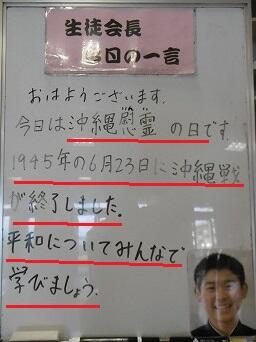 生徒会長
今日の一言
おはようございます。
今日は沖縄慰霊の日です。
1945年の6月23日に沖縄戦
が終了しました。
平和についてみんなで
学びましょう。